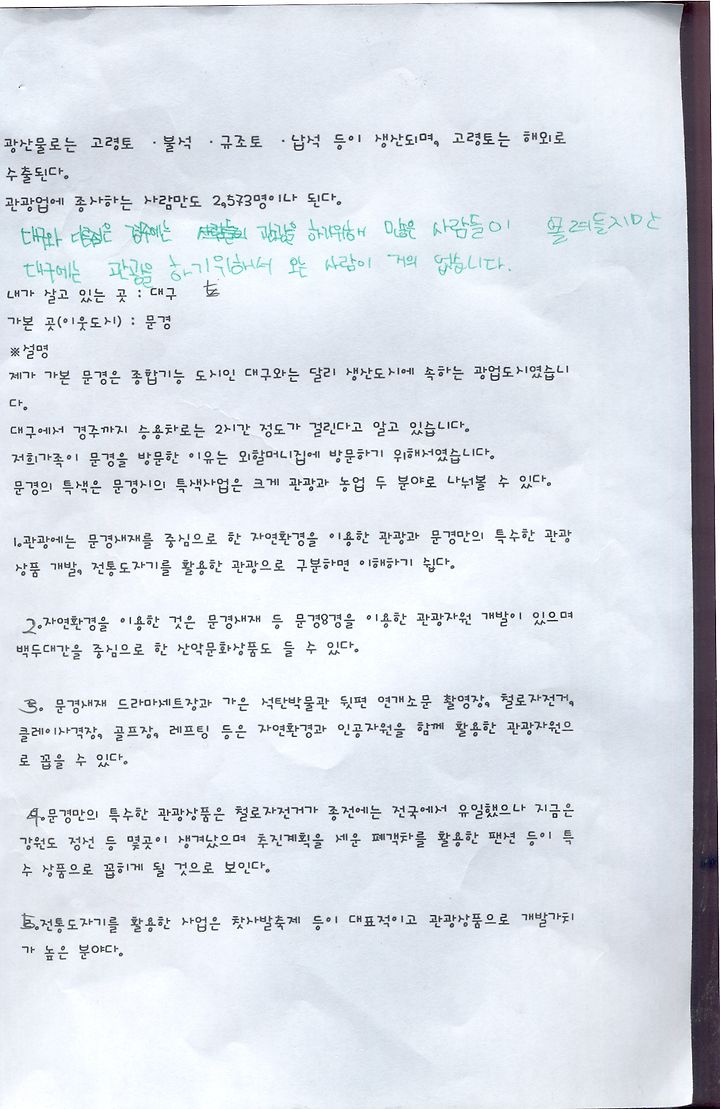 광산물로는 고령토 ·불석 ·규조토 ·납석 등이 생산되며, 고령토는 해외로
수출된다.
관광업에 종사하는 사람만도 2,573명이나 된다.
대구와 다른점은 경주에는 관광을 하기위해 많은 사람들이 몰려들지만
대구에는 관광을 하기위해서 오는 사람이 거의 없습니다.
내가 살고 있는 곳 : 대구
가본 곳(이웃도시) : 문경
※설명
제가 가본 문경은 종합기능 도시인 대구와는 달리 생산도시에 속하는 광업도시였습니
다.
대구에서 경주까지 승용차로는 2시간 정도가 걸린다고 알고 있습니다.
저희가족이 문경을 방문한 이유는 외할머니집에 방문하기 위해서였습니다.
문경의 특색은 문경시의 특색사업은 크게 관광과 농업 두 분야로 나눠볼 수 있다.
1.관광에는 문경새재를 중심으로 한 자연환경을 이용한 관광과 문경만의 특수한 관광
상품 개발, 전통도자기를 활용한 관광으로 구분하면 이해하기 쉽다.
2.자연환경을 이용한 것은 문경새재 등 문경8경을 이용한 관광자원 개발이 있으며
백두대간을 중심으로 한 산악문화상품도 들 수 있다.
3. 문경새재 드라마세트장과 가은 석탄박물관 뒷편 연개소문 촬영장, 철로자전거,
클레이사격장, 골프장, 레프팅 등은 자연환경과 인공자원을 함께 활용한 관광자원으
로 꼽을 수 있다.
4.문경만의 특수한 관광상품은 철로자전거가 종전에는 전국에서 유일했으나 지금은
강원도 정선 등 몇곳이 생겨났으며 추진계획을 세운 폐객차를 활용한 팬션 등이 특
수 상품으로 꼽히게 될 것으로 보인다.
5.전통도자기를 활용한 사업은 찻사발축제 등이 대표적이고 관광상품으로 개발가치
가 높은 분야다.